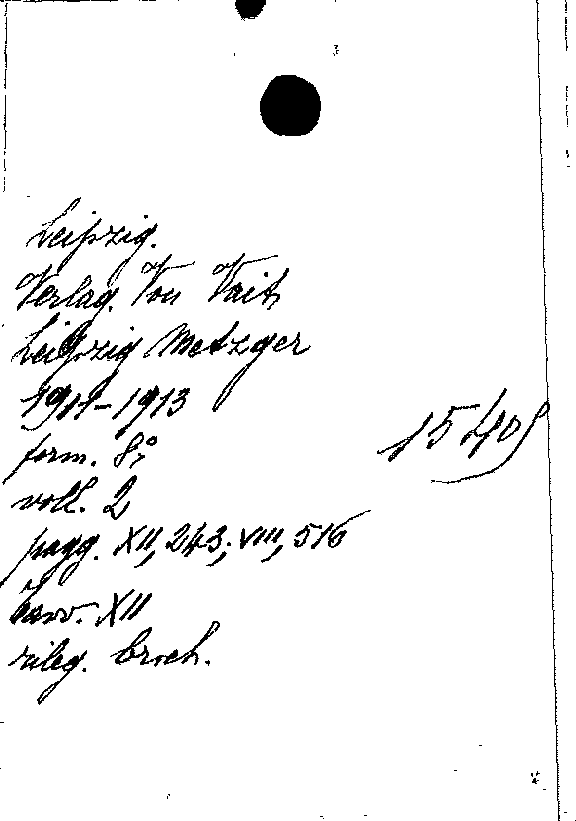 Leipzig.
Verlag. Von Vait,
Leipzig Metzger
1911-1913
form. 8°
voll. 2
pagg. XII, 243; VIII, 516
tavv. XII
rileg. broch.